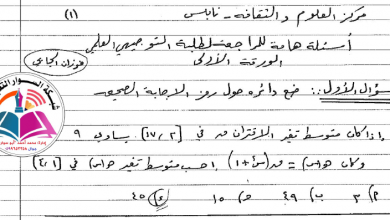 مركز العلوم والثقافة - نابلس (١)
أسئلة هامة للمراجعة لطلبة التوجيهي العلمي
الورقة الأولى
السؤال الأول: ضع دائرة حول رمز الاجابة الصحيحة
إذا كان متوسط تغير الاقتران في [٢، ١٧] يساوي ٩
وكان هـ(س) = (س²+١) احسب متوسط تغير هـ(س) في [١، ٤]
٣ ب) ٤٩ جـ) ١٥ د) ٤٥